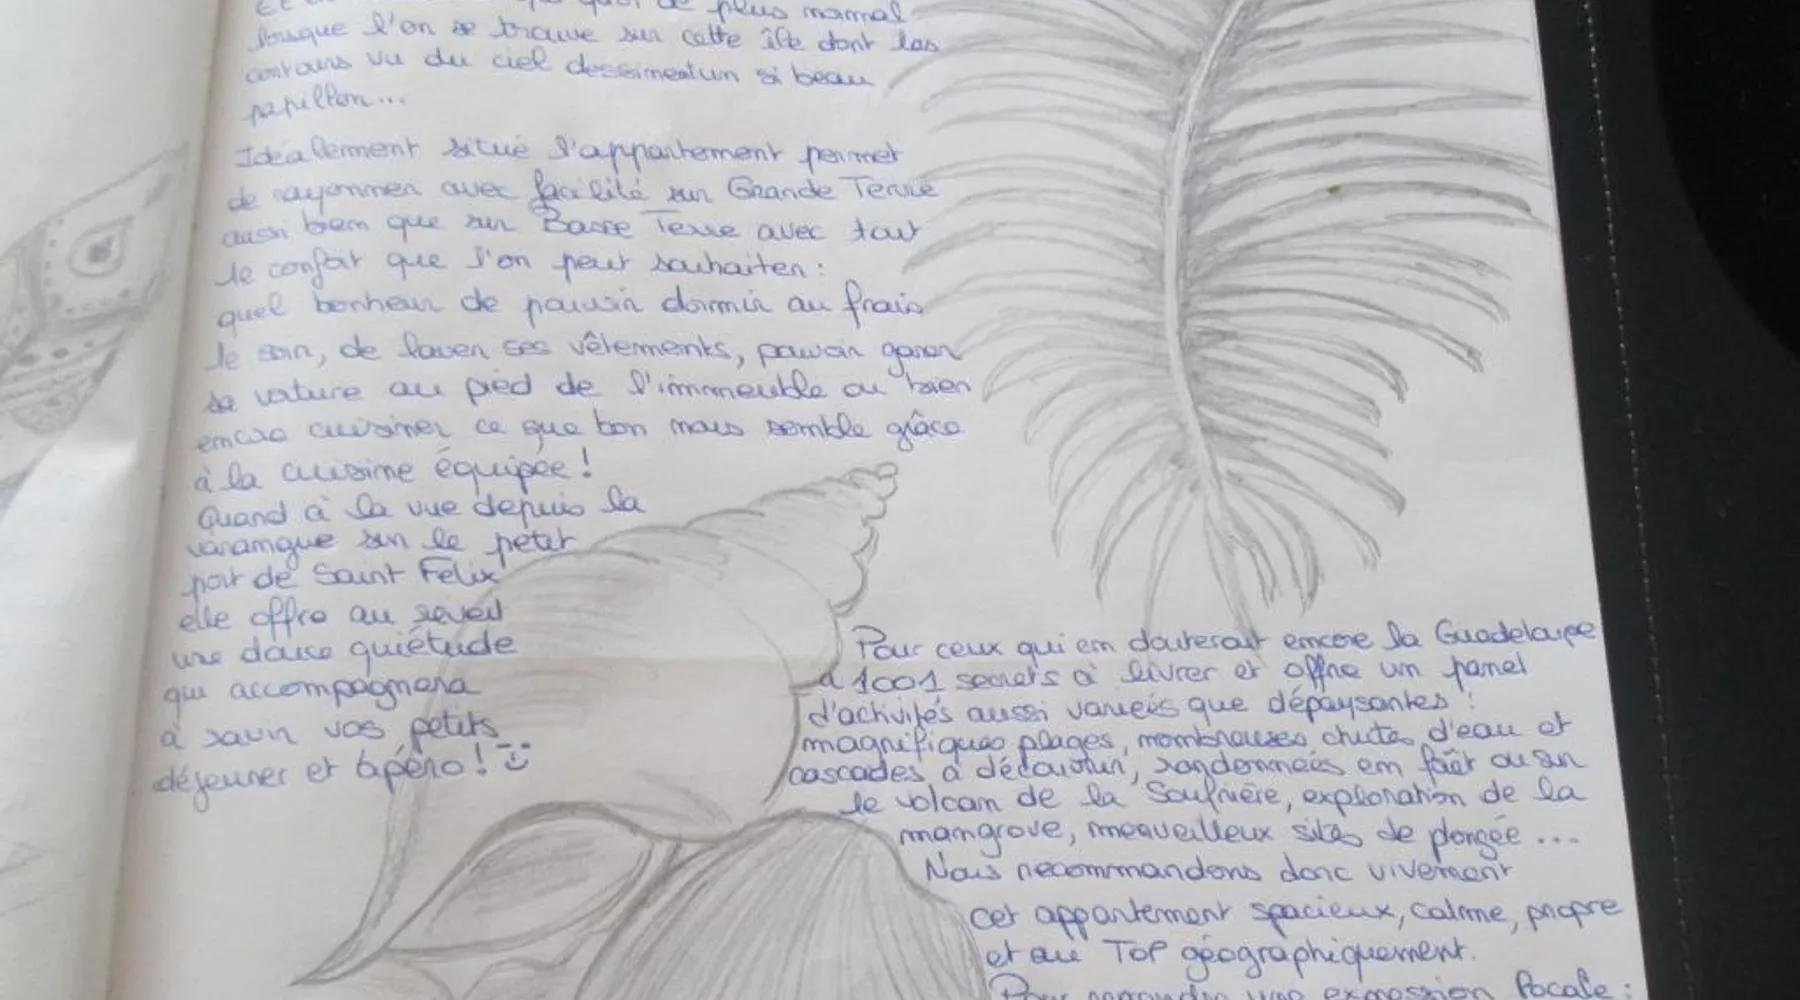 quoi de plus normal
lorsque l'on se trouve sur cette île dont les
contours vu du ciel dessinent un si beau
papillon...
Idéalement situé l'appartement permet
de rayonner avec facilité sur Grande Terre
aussi bien que sur Basse Terre avec tout
le confort que l'on peut souhaiter :
quel bonheur de pouvoir dormir au frais
le soir, de laver ses vêtements, pouvoir garer
sa voiture au pied de l'immeuble ou bien
encore cuisiner ce que bon nous semble grâce
à la cuisine équipée !
Quand à la vue depuis la
varangue sur le petit
port de Saint Felix
elle offre au reveil
une douce quiétude
qui accompagnera
à ravir vos petits
déjeuner et apéro ! :)
Pour ceux qui en douterait encore la Guadeloupe
a 1001 secrets à livrer et offre un panel
d'activités aussi variées que dépaysantes :
magnifiques plages, nombreuses chutes d'eau et
cascades à découvrir, randonnées en forêt ou sur
le volcan de la Soufrière, exploration de la
mangrove, merveilleux sites de plongée ...
Nous recommandons donc vivement
cet appartement spacieux, calme, propre
et au TOP géographiquement.
Pour reprendre une expression locale :